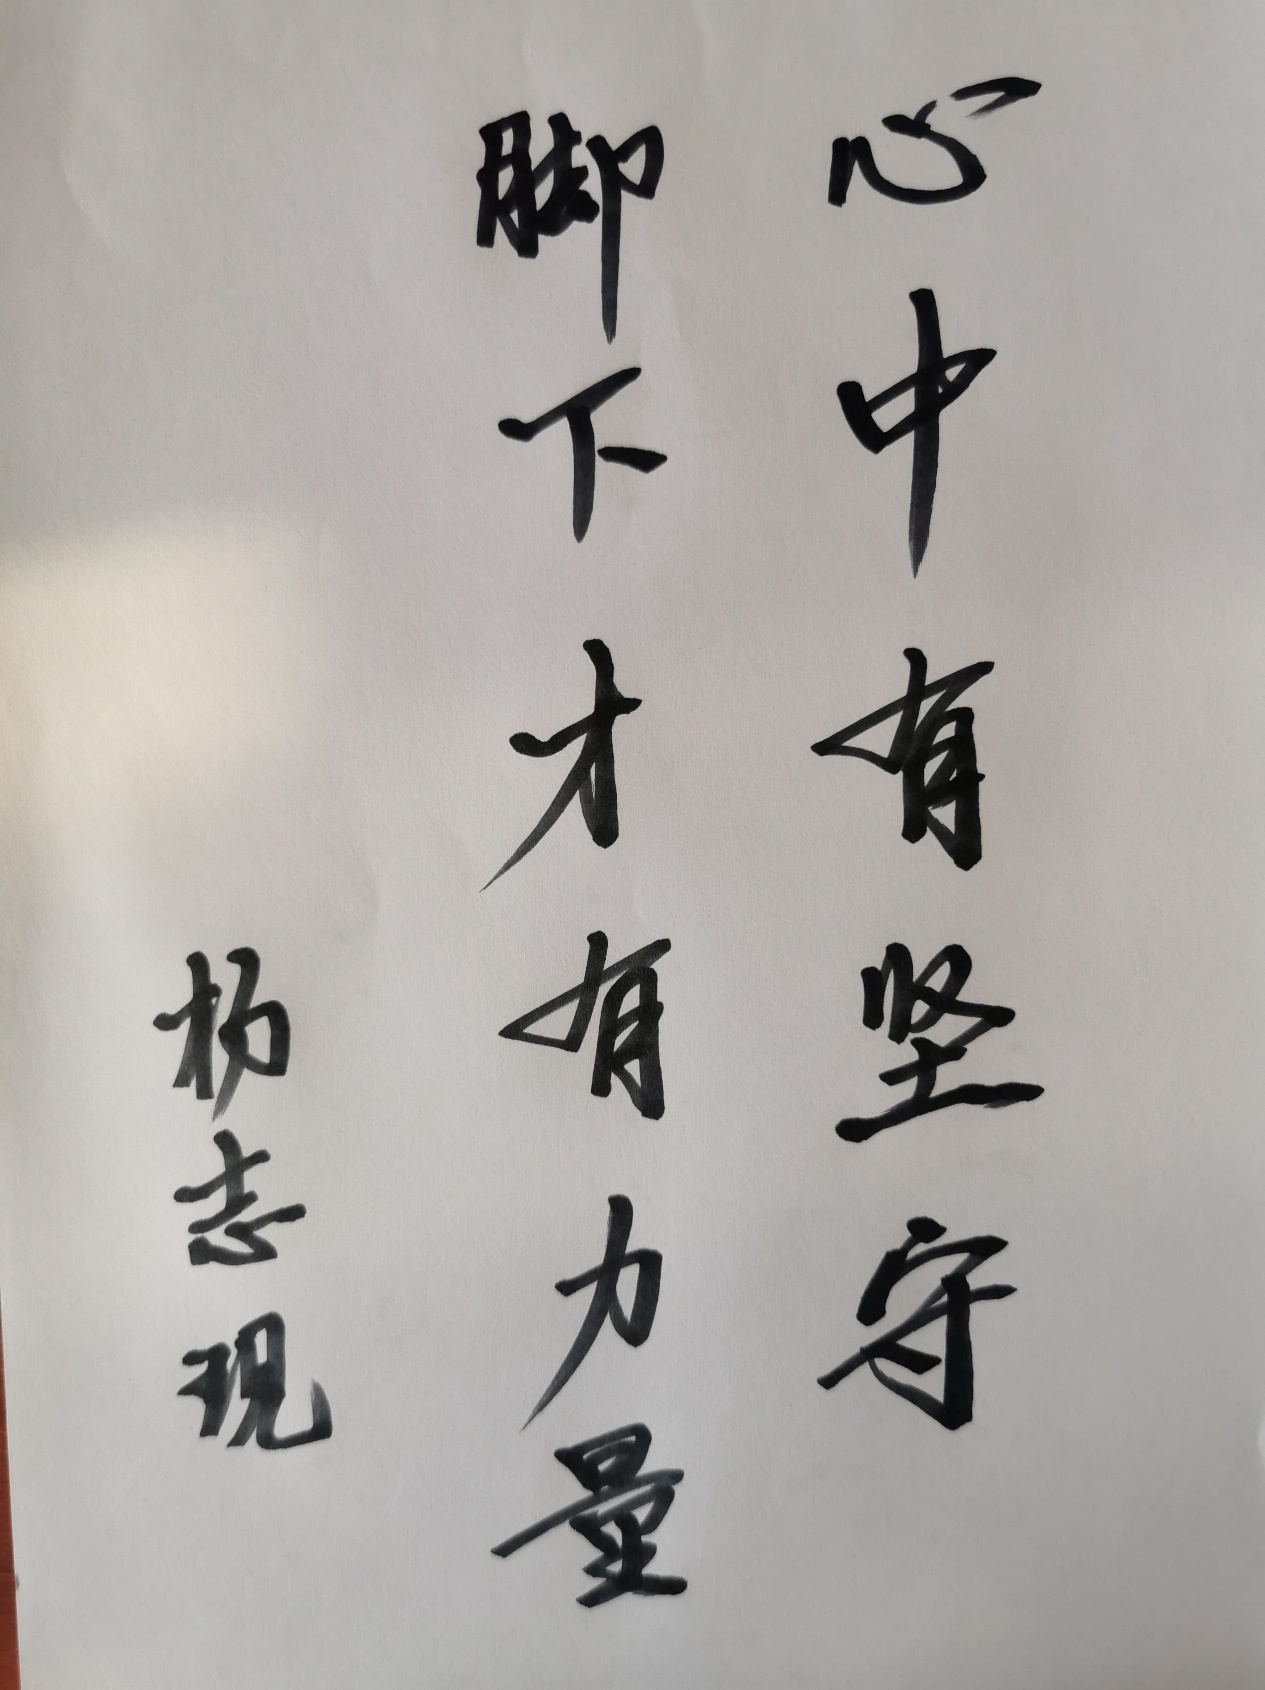 心中有坚守
脚下才有力量
杨志现